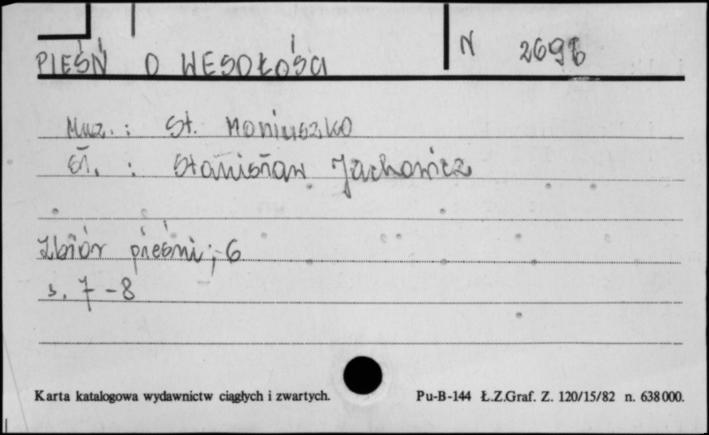 PIEŚŃ O WESOŁOŚCI N 2696
Muz.: St. Moniuszko
sł. : Stanisław Jachowicz
Zbiór pieśni; 6
s. 7-8
Karta katalogowa wydawnictw ciągłych i zwartych. Pu-B-144 Ł.Z.Graf. Z. 120/15/82 n. 638000.